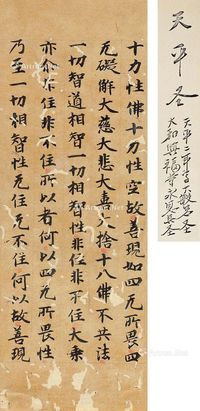 天平圣
天平二年書大般若圣
大和興福寺永恩具圣
十力性佛十力性空故善現如四无所畏四
无礙解大慈大悲大喜大捨十八佛不共法
一切智道相智一切相智性非住非不住大乘
亦尒不住非不住所以者何以四无所畏性
乃至一切相智性无住无不住何以故善現